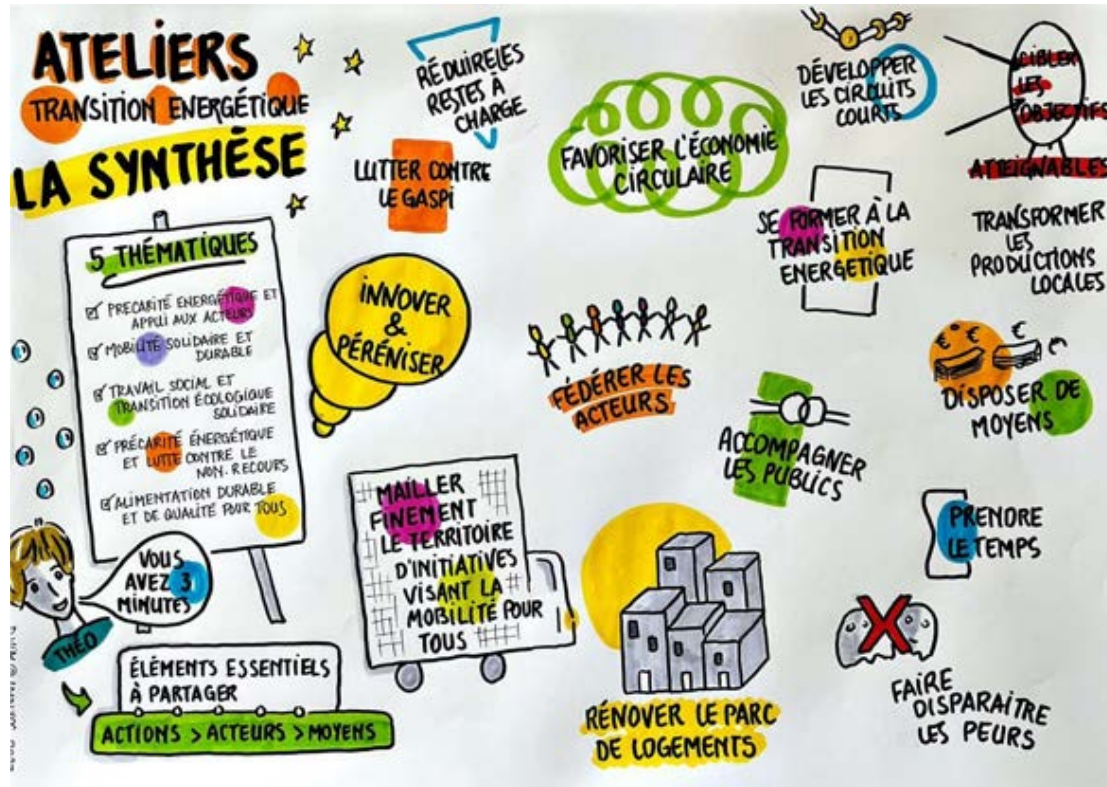 ATELIERS
TRANSITION ENERGÉTIQUE
LA SYNTHÈSE
5 THÉMATIQUES
PRÉCARITÉ ENERGÉTIQUE ET
APPUI AUX ACTEURS
MOBILITÉ SOLIDAIRE ET
DURABLE
TRAVAIL SOCIAL ET
TRANSITION ÉCOLOGIQUE
SOLIDAIRE
PRÉCARITÉ ÉNERGÉTIQUE
ET LUTTE CONTRE LE
NON-RECOURS
ALIMENTATION DURABLE
ET DE QUALITÉ POUR TOUS
VOUS
AVEZ 3
MINUTES
THÉO
ÉLÉMENTS ESSENTIELS
À PARTAGER
ACTIONS > ACTEURS > MOYENS
RÉDUIRE LES
RESTES À
CHARGE
LUTTER CONTRE
LE GASPI
INNOVER
&
PÉRÉNISER
MAILLER
FINEMENT
LE TERRITOIRE
D'INITIATIVES
VISANT LA
MOBILITÉ POUR
TOUS
FAVORISER L'ÉCONOMIE
CIRCULAIRE
FÉDÉRER LES
ACTEURS
RÉNOVER LE PARC
DE LOGEMENTS
DÉVELOPPER
LES CIRCUITS
COURTS
SE FORMER À LA
TRANSITION
ENERGETIQUE
ACCOMPAGNER
LES PUBLICS
CIBLER
LES
OBJECTIFS
ATTEIGNABLES
TRANSFORMER
LES
PRODUCTIONS
LOCALES
€ € €
DISPOSER DE
MOYENS
PRENDRE
LE TEMPS
FAIRE
DISPARAITRE
LES PEURS